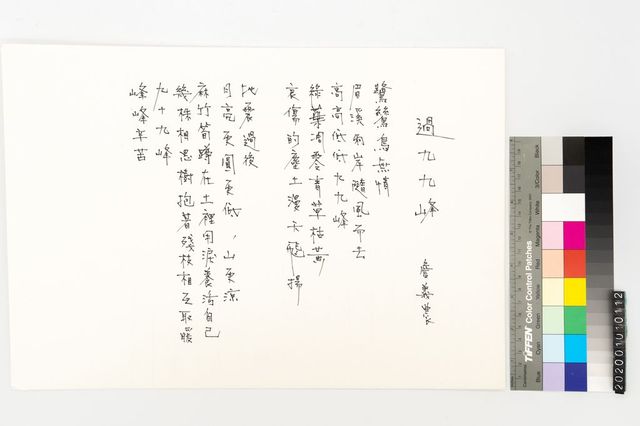 過九九峰
詹義農
鷺鷥鳥無情
眉溪兩岸隨風而去
高高低低九九峰
綠葉凋零青草枯黃
哀傷的塵土漫天飛揚
地震過後
月亮更圓更低，山更涼
麻竹筍蹲在土裡用淚養活自己
幾株相思樹抱著殘枝相互取暖
九十九峰
峰峰辛苦
Black
3/Color
White
Magenta
Red
Yellow
Green
Cyan
Blue
TIFFEN Color Control Patches
202001010112